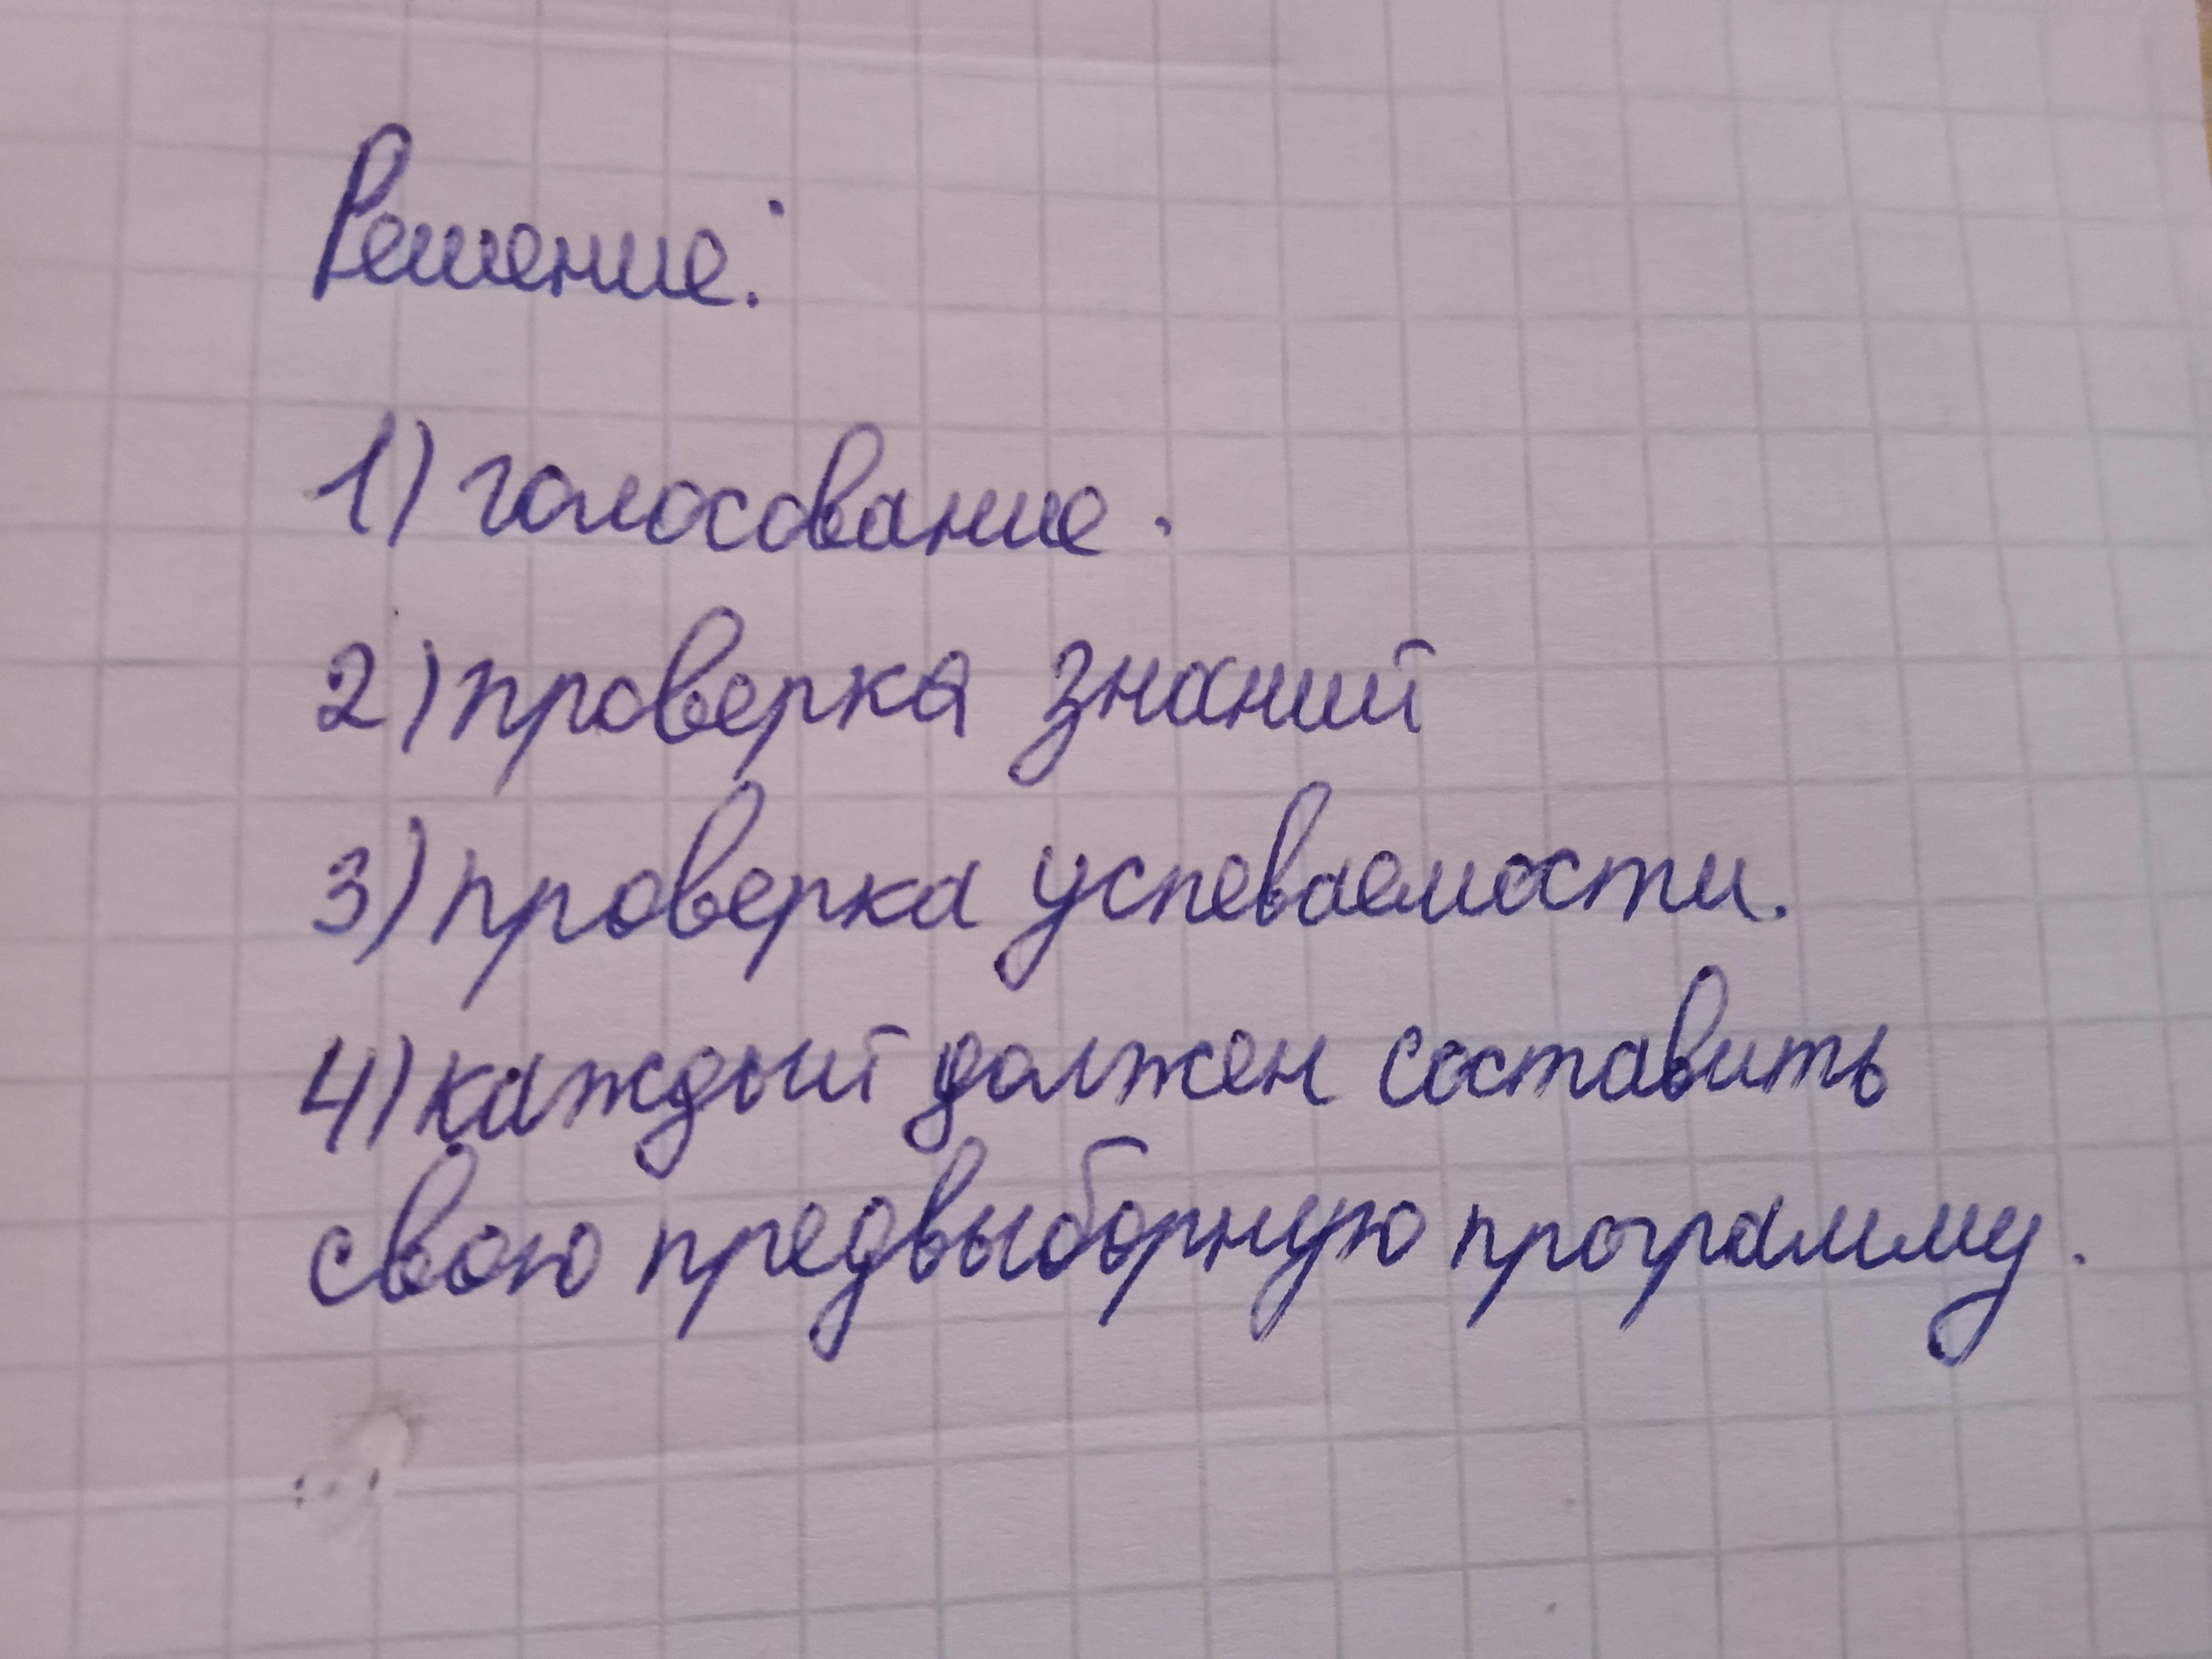 Решение:
1) голосование.
2) проверка знаний
3) проверка успеваемости.
4) каждый должен составить
свою предвыборную программу.